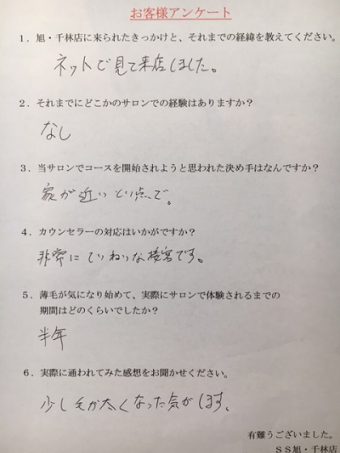 お客様アンケート
1．旭・千林店に来られたきっかけと、それまでの経緯を教えてください。
ネットで見て来店しました。
2．それまでにどこかのサロンでの経験はありますか？
なし
3．当サロンでコースを開始されようと思われた決め手はなんですか？
家が近いという点で。
4．カウンセラーの対応はいかがですか？
非常にていねいな接客です。
5．薄毛が気になり始めて、実際にサロンで体験されるまでの
期間はどのくらいでしたか？
半年
6．実際に通われてみた感想をお聞かせください。
少し毛が太くなった気がします。
有難うございました。
ＳＳ旭・千林店